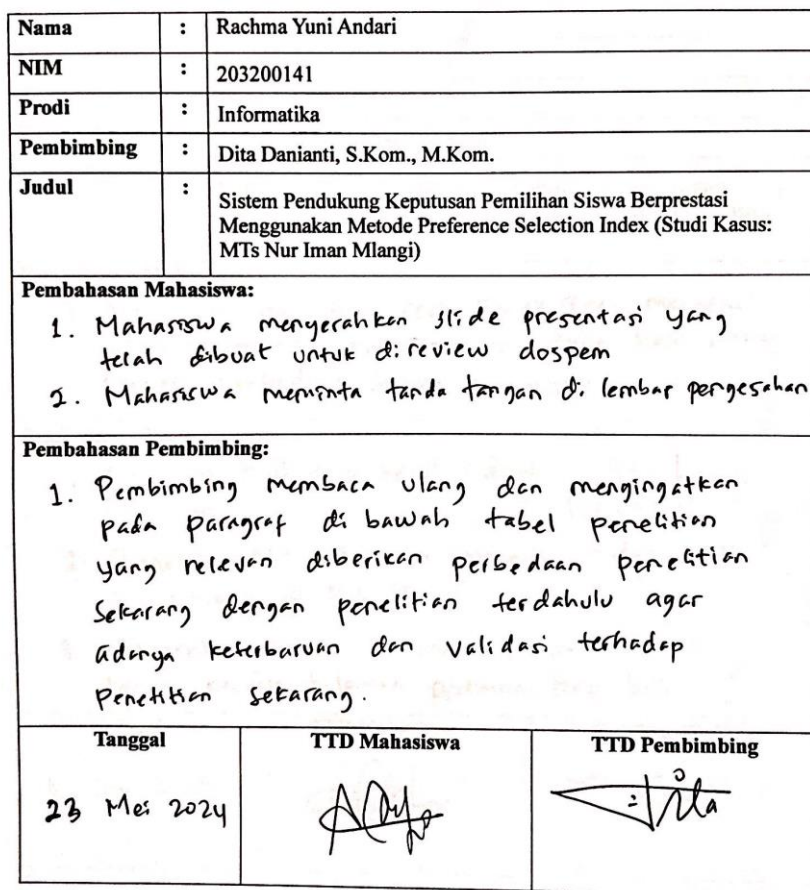 Nama : Rachma Yuni Andari
NIM : 203200141
Prodi : Informatika
Pembimbing : Dita Danianti, S.Kom., M.Kom.
Judul : Sistem Pendukung Keputusan Pemilihan Siswa Berprestasi
Menggunakan Metode Preference Selection Index (Studi Kasus:
MTs Nur Iman Mlangi)
Pembahasan Mahasiswa:
1. Mahasiswa menyerahkan slide presentasi yang
telah dibuat untuk direview dospem
2. Mahasiswa meminta tanda tangan di lembar pengesahan
Pembahasan Pembimbing:
1. Pembimbing membaca ulang dan mengingatkan
pada paragraf di bawah tabel penelitian
yang relevan diberikan perbedaan penelitian
Sekarang dengan penelitian terdahulu agar
adanya keterbaruan dan validasi terhadap
Penelitian sekarang.
Tanggal TTD Mahasiswa TTD Pembimbing
23 Mei 2024